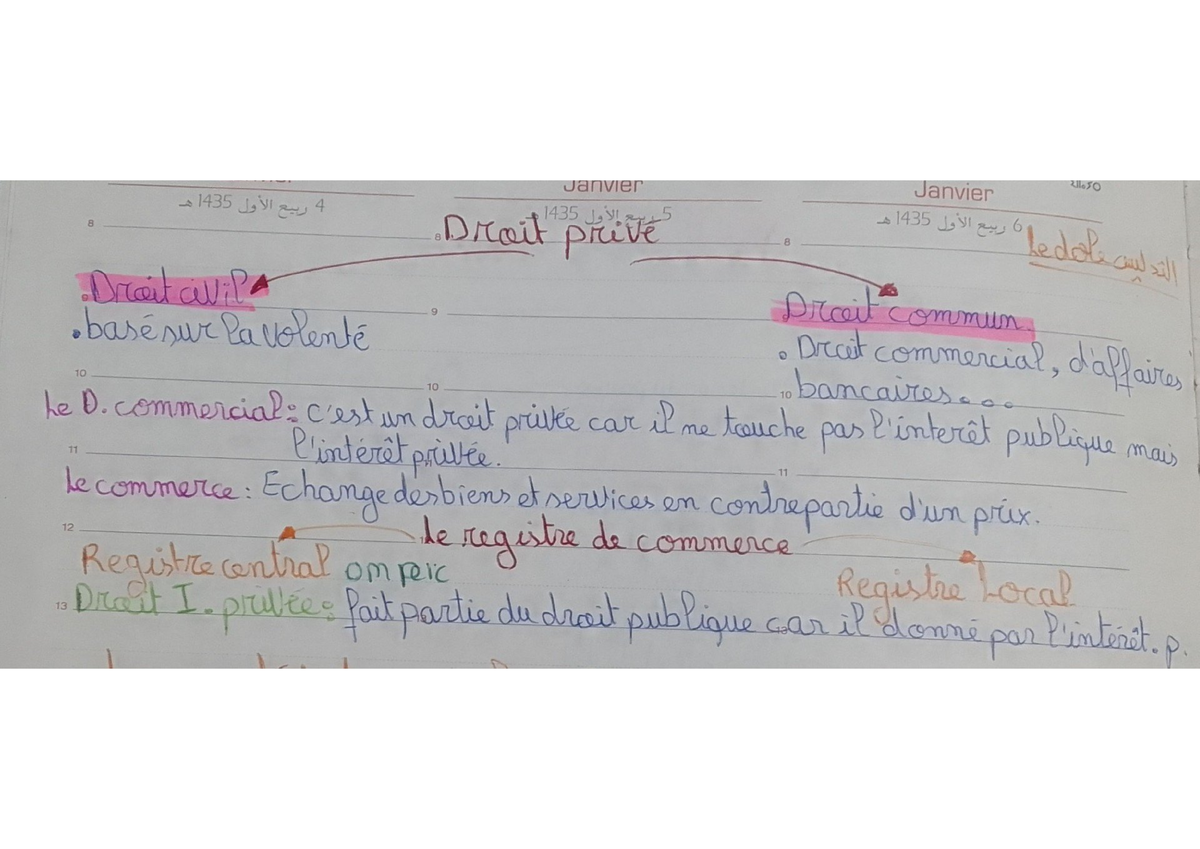 Janvier
Janvier
4 ربيع الأول 1435 هـ
5 ربيع الأول 1435
6 ربيع الأول 1435 هـ
8
8
8
Droit privé
Le dol التدليس
.Droit civil
9
Droit commun
.basé sur la volenté
. Droit commercial, d'affaires
10
10
10
bancaires....
Le D. commercial : c'est un droit privée car il ne touche pas l'interêt publique mais
11
l'intérêt privée.
11
Le commerce : Echange des biens et services en contrepartie d'un prix.
12
Le registre de commerce
Registre central ompeic
Registre Local
13
Droit I. privée : fait partie du droit publique car il donné par l'intérêt. p.